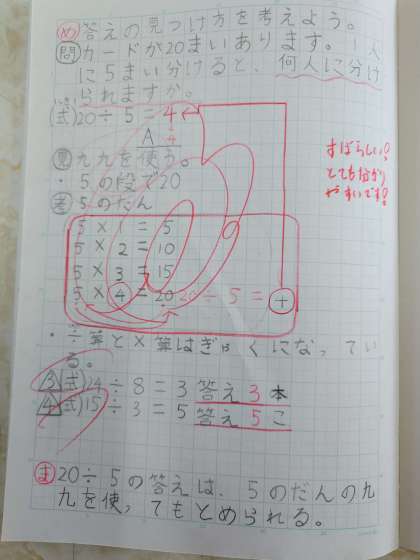 め 答えの見つけ方を考えよう。
問 カードが20まいあります。1人
に5まい分けると、何人に分け
られますか。
(式)20÷5=4
A 4
見 九九を使う。
・5の段で20
考 5のだん
5×1=5
5×2=10
5×3=15
5×4=20 20÷5=4
・÷算と×算はぎゃくになってい
る。
3 (式)24÷8=3 答え 3本
4 (式)15÷3=5 答え 5こ
ま 20÷5の答えは、5のだんの九
九を使ってもとめられる。
すばらしい!
とても分かり
やすいです!